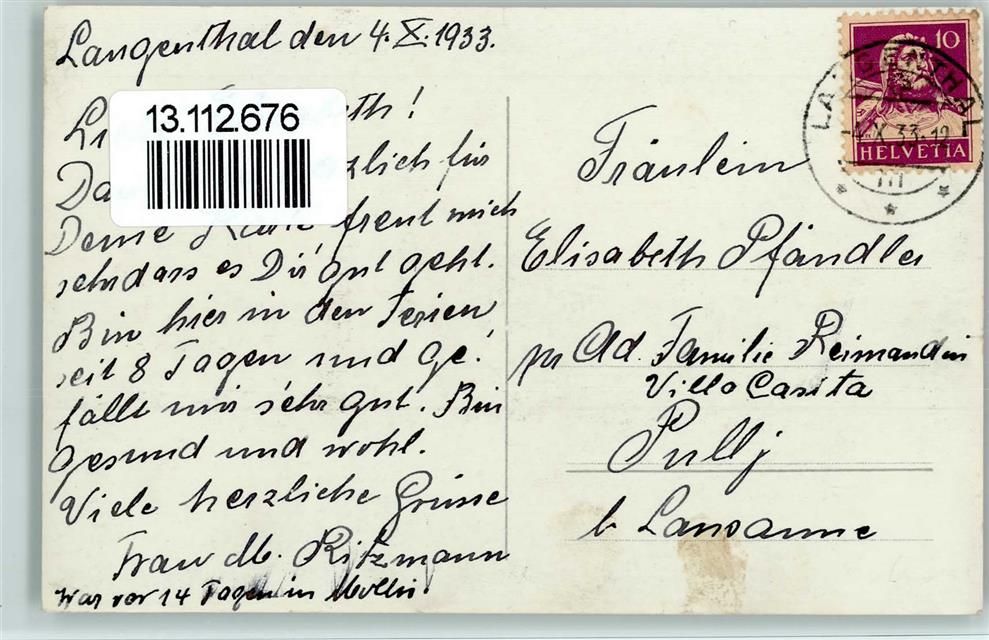 Langenthal den 4.X.1933.
13.112.676
Deine Karte freut mich
sehr dass es Dir gut geht.
Bin hier in den Ferien
seit 8 Tagen und ge-
fällt mir sehr gut. Bin
gesund und wohl.
Viele herzliche Grüsse
Frau M. Ritzmann
War vor 14 Tagen in
10
HELVETIA
LANGENTHAL
-4.X.33.-12
III
Fräulein
Elisabeth Pfändler
pr Ad. Familie
Villa Casita
Pully
b. Lausanne